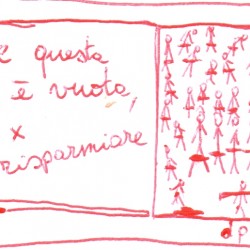 è questa
è vuota,
x
risparmiare